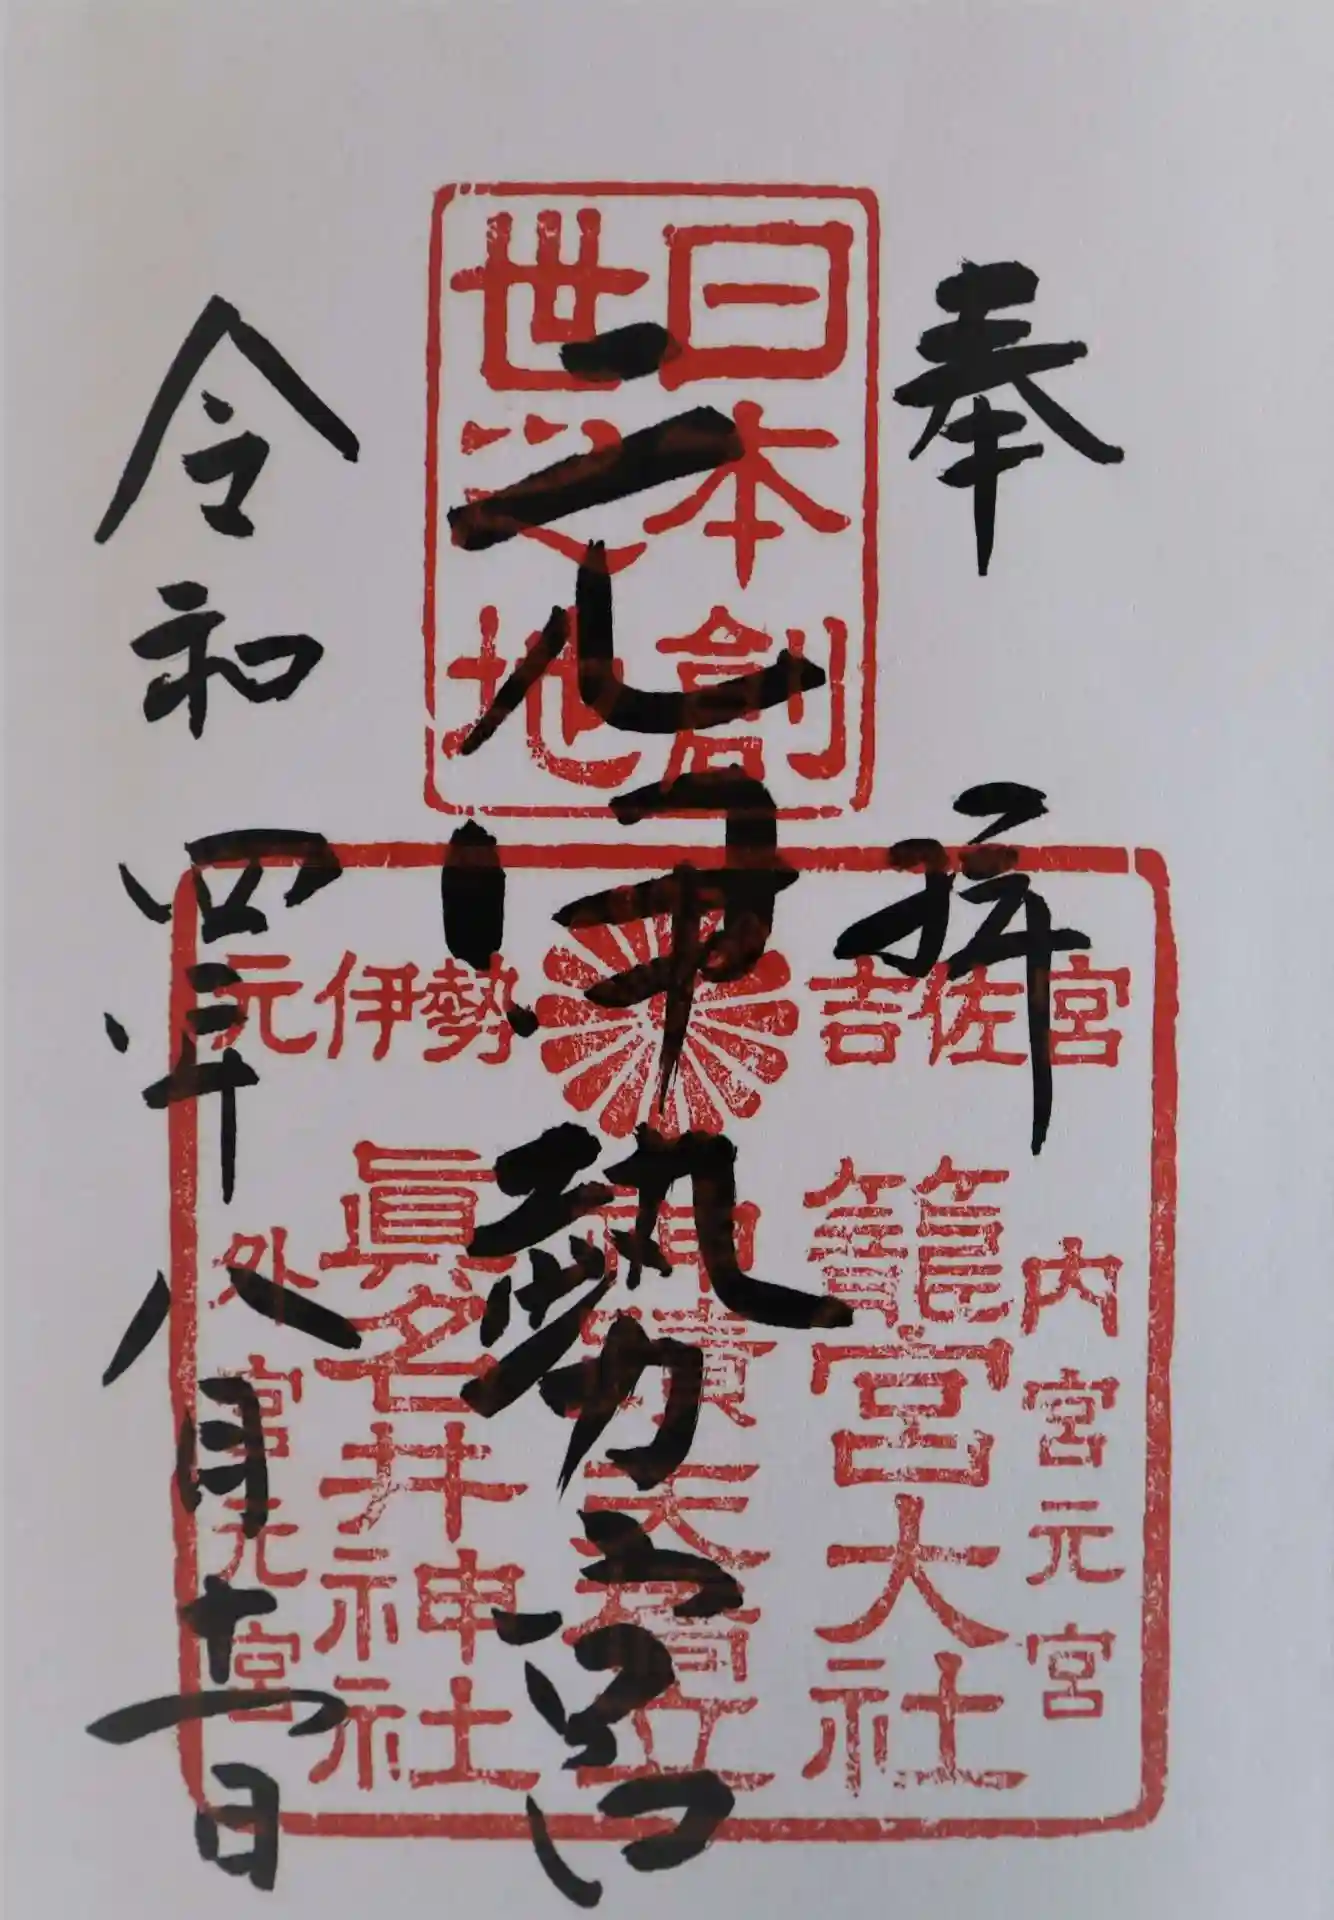 奉拝
元伊勢宮
令和四年八月十一日
日本創
世之地
宮佐吉
勢伊元
内宮元宮
籠宮大社
神蹟天橋立
眞名井神社
外宮元宮